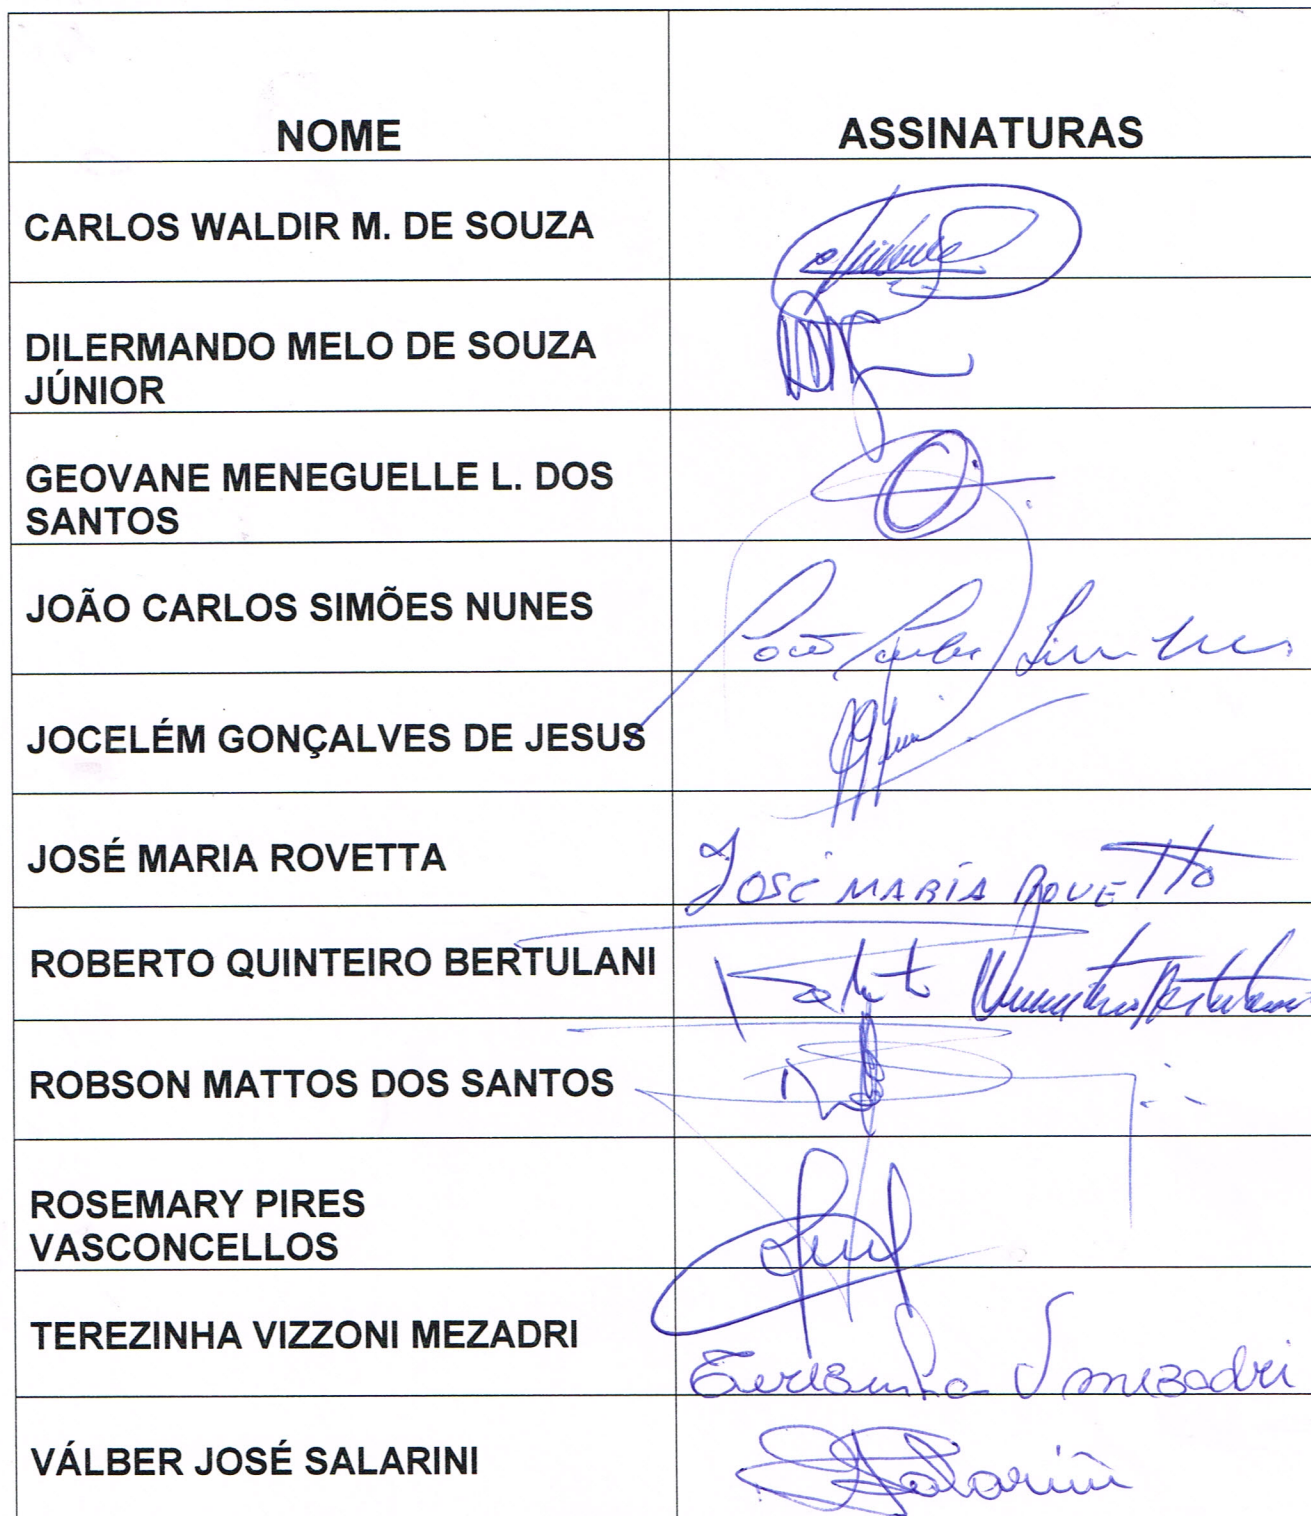 NOME ASSINATURAS
CARLOS WALDIR M. DE SOUZA
DILERMANDO MELO DE SOUZA
JÚNIOR
GEOVANE MENEGUELLE L. DOS
SANTOS
JOÃO CARLOS SIMÕES NUNES João Carlos
JOCELÉM GONÇALVES DE JESUS
JOSÉ MARIA ROVETTA JOSÉ MARIA ROVETTA
ROBERTO QUINTEIRO BERTULANI Roberto Quinteiro Bertulani
ROBSON MATTOS DOS SANTOS
ROSEMARY PIRES
VASCONCELLOS
TEREZINHA VIZZONI MEZADRI Terezinha V mezadri
VÁLBER JOSÉ SALARINI Salarini